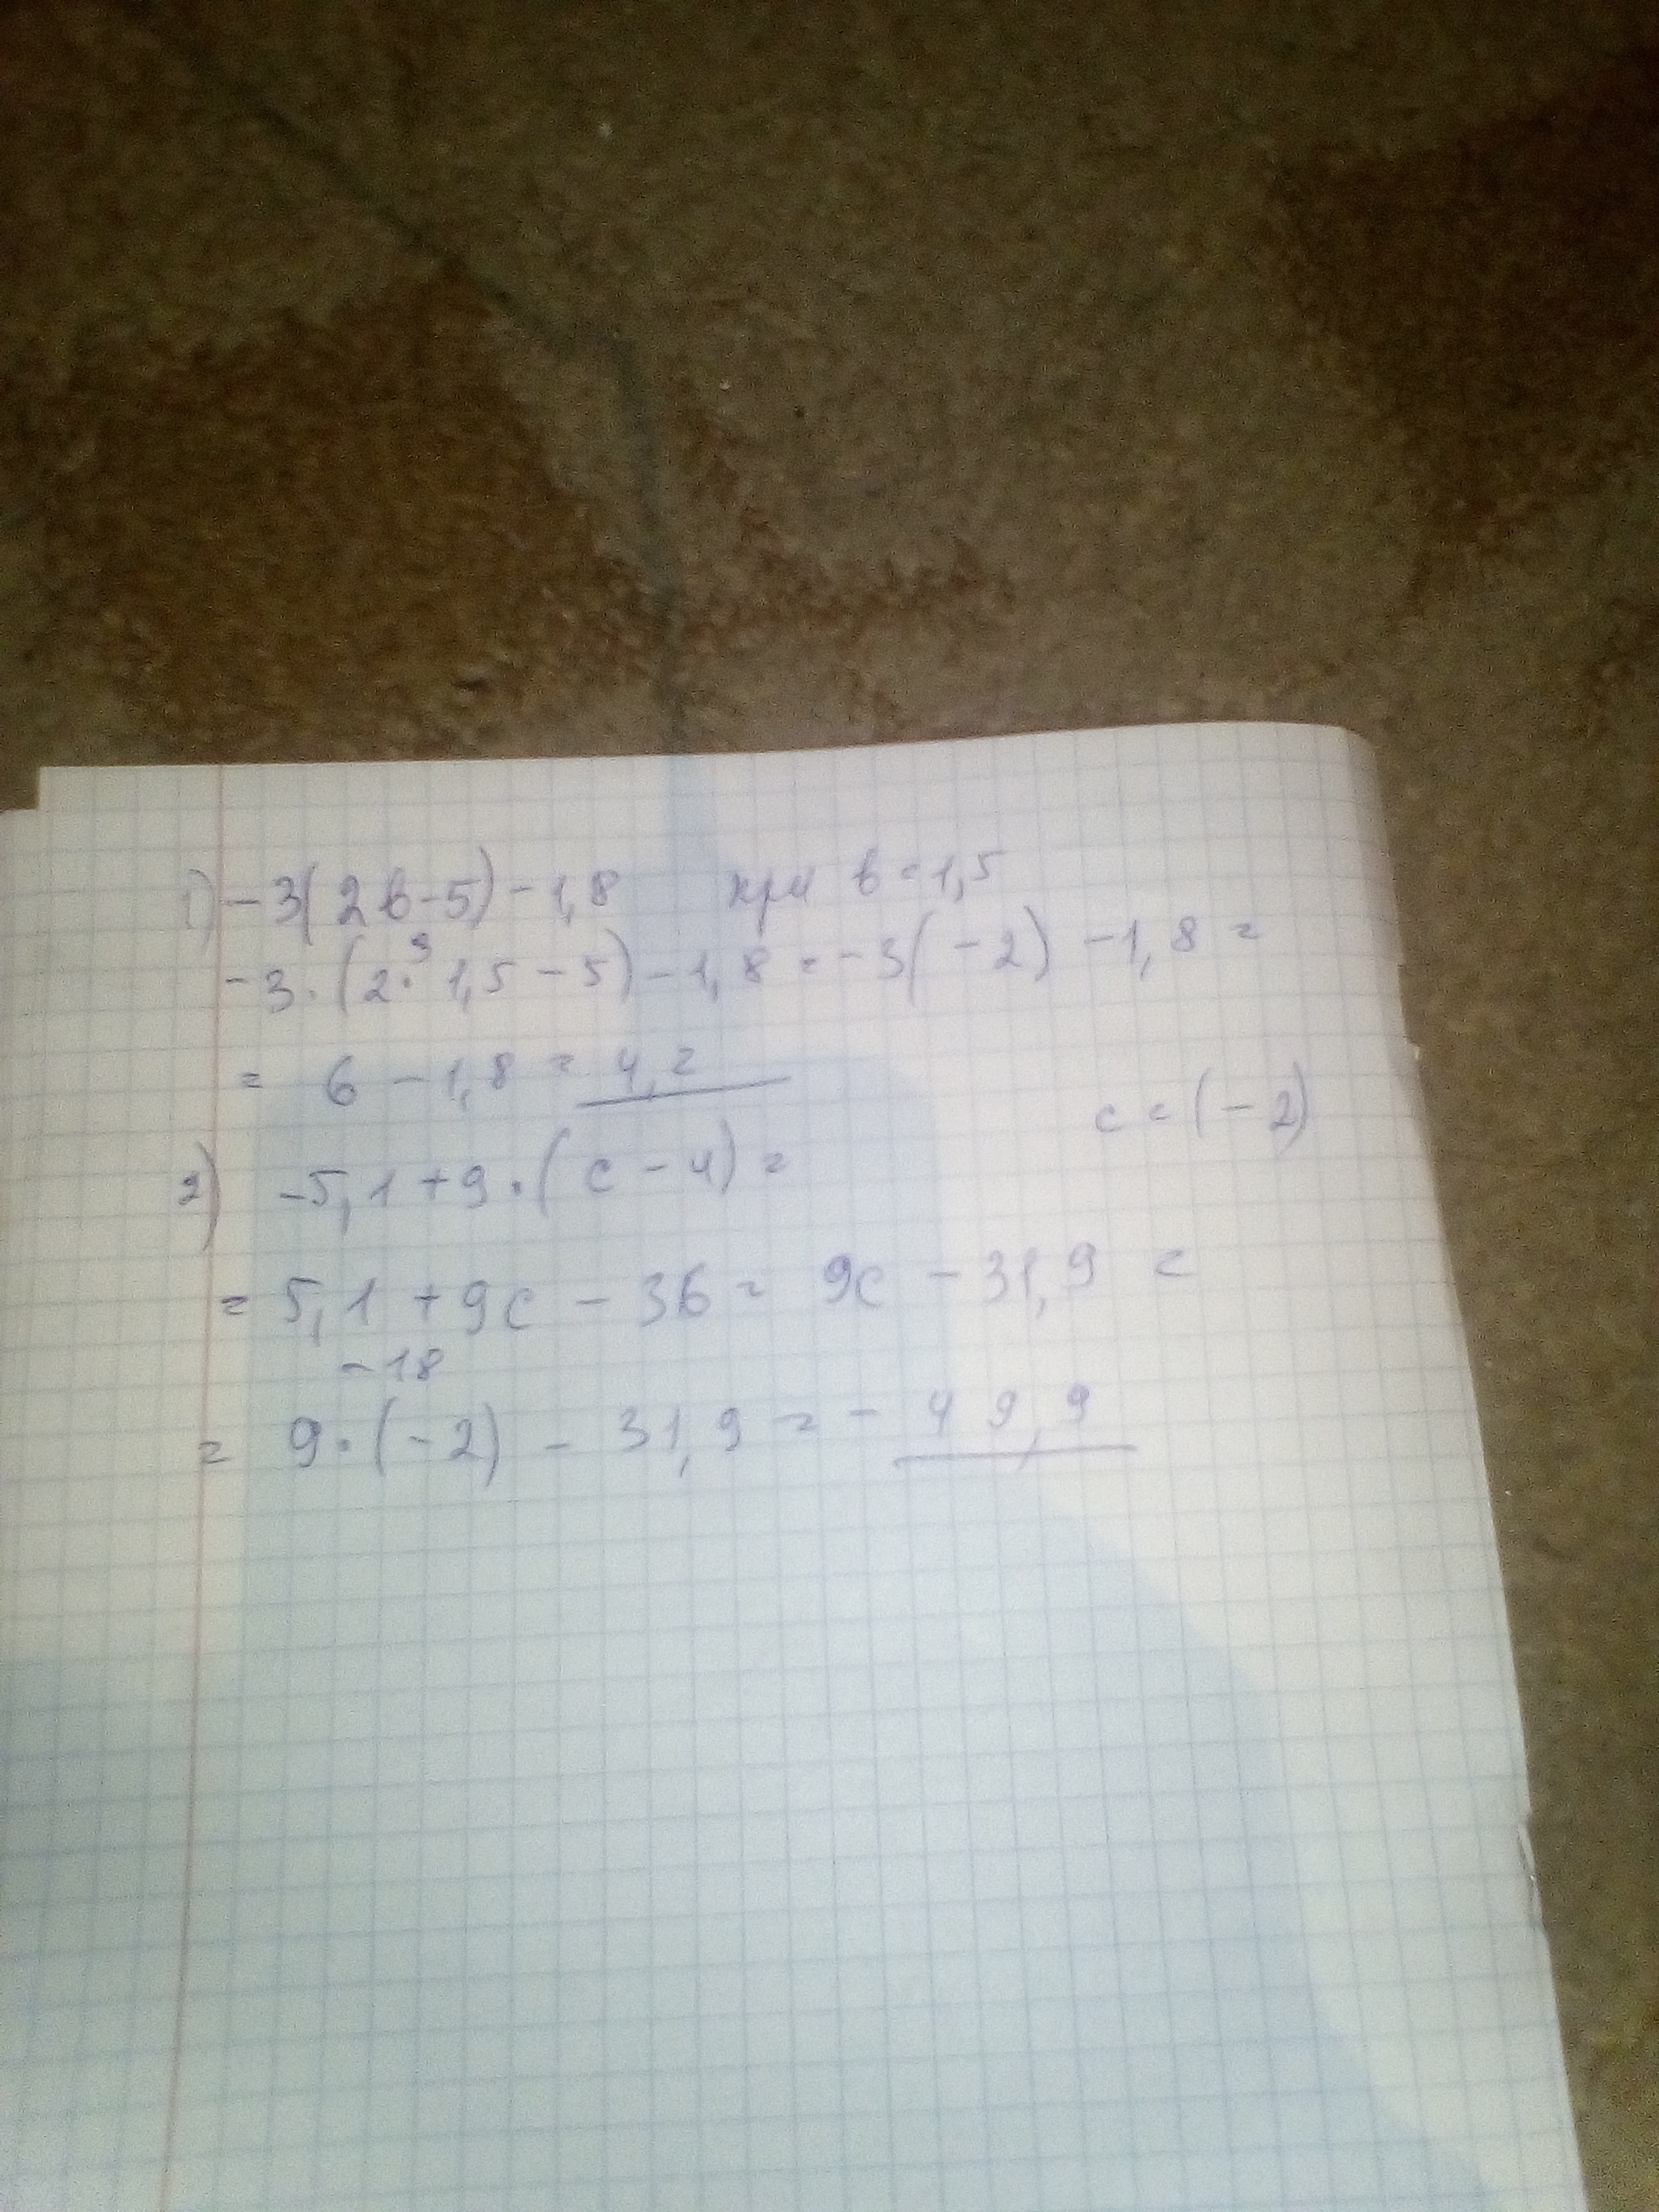 1) -3(2b-5)-1,8 при b=1,5
3
-3·(2·1,5-5)-1,8=-3(-2)-1,8=
= 6-1,8=4,2
c=(-2)
2) -5,1+9·(c-4)=
= 5,1+9c-36= 9c-31,9=
-18
= 9·(-2)-31,9=-49,9